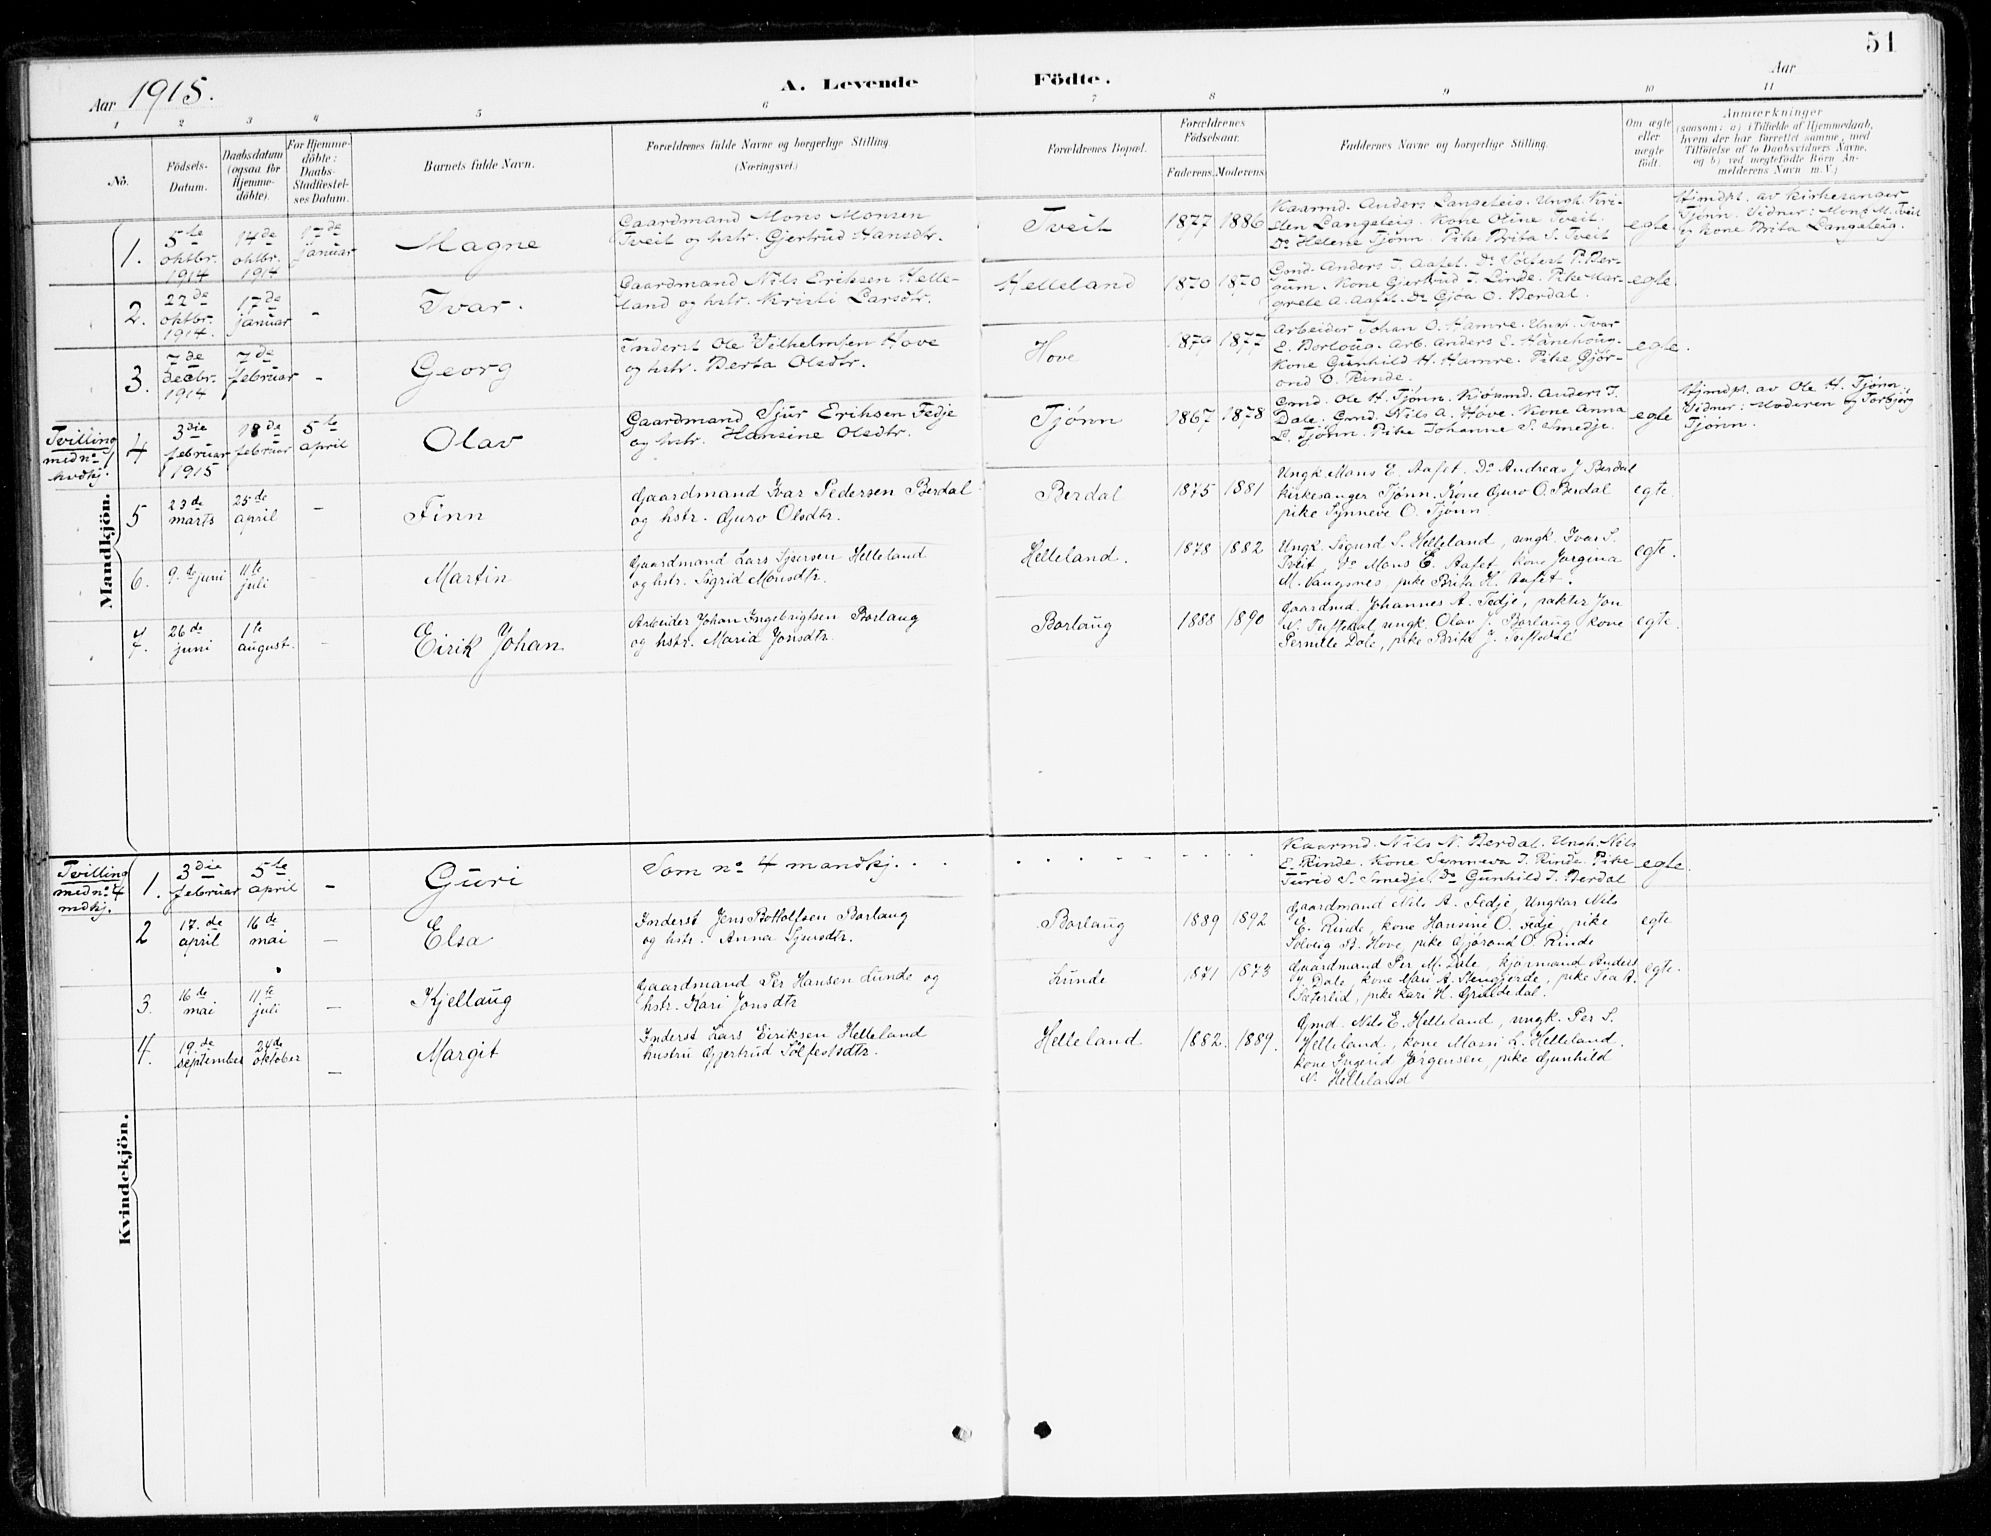 51
Aar 1915.
A. Levende Födte.
Aar
1 2 3 4 5 6 7 8 9 10 11
No.
Födsels-Datum.
Daabsdatum (ogsaa for Hjemme-döbte).
For Hjemme-döbte: Daabs-Stadfæstel-ses Datum.
Barnets fulde Navn.
Forældrenes fulde Navne og borgerlige Stilling.
(Næringsvei.)
Forældrenes Bopæl.
Forældrenes Födselsaar.
Faderens. Moderens.
Faddernes Navne og borgerlige Stilling.
Om ægte eller uægte födt.
Anmærkninger
(saasom: a) i Tilfælde af Hjemmedaab,
hvem der har forrettet samme, med
Tilföielse af to Daabsvidners Navne,
og b) ved uægtefödte Börn An-
melderens Navn m. V.)
Mandkjön.
1. 5te oktbr. 1914 14de oktbr. 1914 17de januar Magne
Gaardmand Mons Monsen
Tveit og hstr. Gjertrud Hansdtr.
Tveit 1877 1886
Kaarmd. Anders Langeteig. Ungk. Kri-
sten Langeteig. Kone Oline Tveit.
Do Helene Tjønn. Pike Brita S. Tveit
egte.
Hjmdpt. av kirkesanger
Tjønn. Vidner: Mons M. Tveit
og kone Brita Langeteig.
2. 22de oktbr. 1914. 17de januar - Ivar.
Gaardmand Nils Eriksen Helle-
land og hstr. Kristi Larsdtr.
Helleland 1870 1870
Gmd. Anders T. Aafet. Do Volbert P. Ber-
gum. Kone Gjertrud T. Linde. Pike Mar-
grete A. Aafet. Do Gjøa O. Berdal.
egte.
3. 7de decbr. 1914 7de februar - Georg
Inderst Ole Vilhelmsen Hove
og hstr. Berta Olsdtr.
Hove 1879 1877
Arbeider Johan O. Hamre. Ungk. Ivar
E. Borloug. Arb. Anders E. Hanehoug.
Kone Gunhild H. Hamre. Pike Gjør-
ond O. Rinde.
egte.
Tvilling med no 1 kvdkj.
4 3die februar 1915 18de februar 5te april Olav
Gaardmand Sjur Eriksen Fedje
og hstr. Hansine Olsdtr.
Tjønn 1867 1878
Gmd. Ole H. Tjønn. Kjøbmd. Anders T.
Dale. Gmd. Nils A. Hove. Kone Anna
L. Tjønn. Pike Johanne S. Smedje.
egte
Hjmdpt. av Ole H. Tjønn.
Vidner: Moderen og Torbjørg
Tjønn.
5 23de marts 25de april - Finn
Gaardmand Ivar Pedersen Berdal
og hstr. Guro Olsdtr.
Berdal 1875 1881
Ungk. Mons E. Aafet. Do Andreas J. Berdal
kirkesanger Tjønn. Kone Guro O. Berdal
pike Synneve O. Tjønn
egte.
6. 9.de juni 11te juli - Martin
Gaardmand Lars Sjursen Helleland
og hstr. Sigrid Monsdtr.
Helleland. 1878 1882
Ungk. Sigurd S. Helleland, ungk. Ivar S.
Tveit, do Mons E. Aafet. kone Jorgina
M. Vangsnes, pike Brita H. Aafet.
egte.
7. 26de juni 1te august. - Eirik Johan
Arbeider Johan Ingebrigtsen Borlaug
og hstr. Maria Jonsdtr.
Borlaug 1888 1890
Gaardmd. Johannes A. Fedje, pakter Jon
N. Tuftedal ungk. Olav J. Borlaug kone
Pernille Dale, pike Brita J. Tuftedal
egte.
Kvindekjön.
Tvilling med no 4 mdkj.
1. 3die februar 5te april - Guri
Som no 4 mandkj. . .
Kaarmd. Nils N. Berdal. Ungk. Nils
E. Rinde. Kone Synneva T. Rinde. Pike
Turid S. Smedje. Do Gunhild I. Berdal
egte.
2 17.de april 16de mai - Elsa
Inderst Jens Bottolfsen Borlaug
og hstr. Anna Sjursdtr.
Borlaug 1889 1892
Gaardmand Nils A. Fedje, Ungkar Nils
E. Rinde, kone Hansine O. Fedje, pike
Solveig B. Hove, pike Gjørond O. Rinde
egte
3. 16de mai 11te juli - Kjellaug
Gaardmand Per Hansen Lunde og
hstr. Kari Jonsdtr
Lunde 1871 1873
Gaardmand Per M. Dale, kjørmand Anders
Dale, kone Mari A. Stenggerde, pike Tea A.
Sæterlid, pike Kari H. Grindedal.
egte.
4. 19de september 24de oktober - Margit
Inderst Lars Eiriksen Helleland
hustru Gjertrud Solfestsdtr.
Helleland 1882. 1889.
Gmd. Nils E. Helleland, ungk. Per S.
Helleland, kone Massi L. Helleland.
kone Ingerid Jørgensen, pike Gunhild
N. Helleland